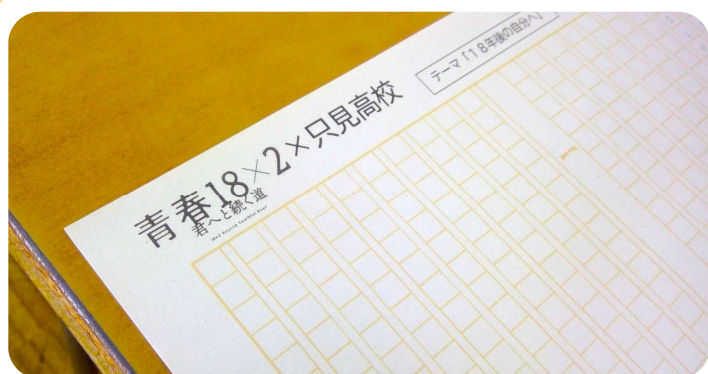 青春18×2×只見高校
君へと続く道
テーマ「18年後の自分へ」